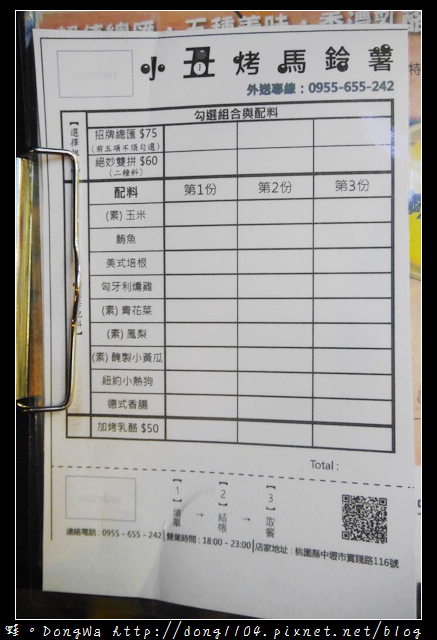 小丑烤馬鈴薯
外送專線：0955-655-242
勾選組合與配料
招牌總匯 $75
(前五項不須勾選)
絕妙雙拼 $60
(二種料)
配料 第1份 第2份 第3份
(素) 玉米
鮪魚
美式培根
匈牙利燻雞
(素) 青花菜
(素) 鳳梨
(素) 醃製小黃瓜
紐約小熱狗
德式香腸
加烤乳酪 $50
Total :
【1】填單 → 【2】結帳 → 【3】取餐
連絡電話：0955 - 655 - 242 | 營業時間：18:00 - 23:00 | 店家地址：桃園縣中壢市實踐路116號
。DongWa At http://dong1104.pixnet.net/blog